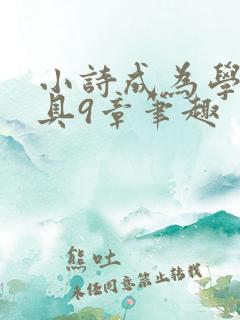 小詩成為學
具9章筆趣
熊吐
未經同意禁止轉載